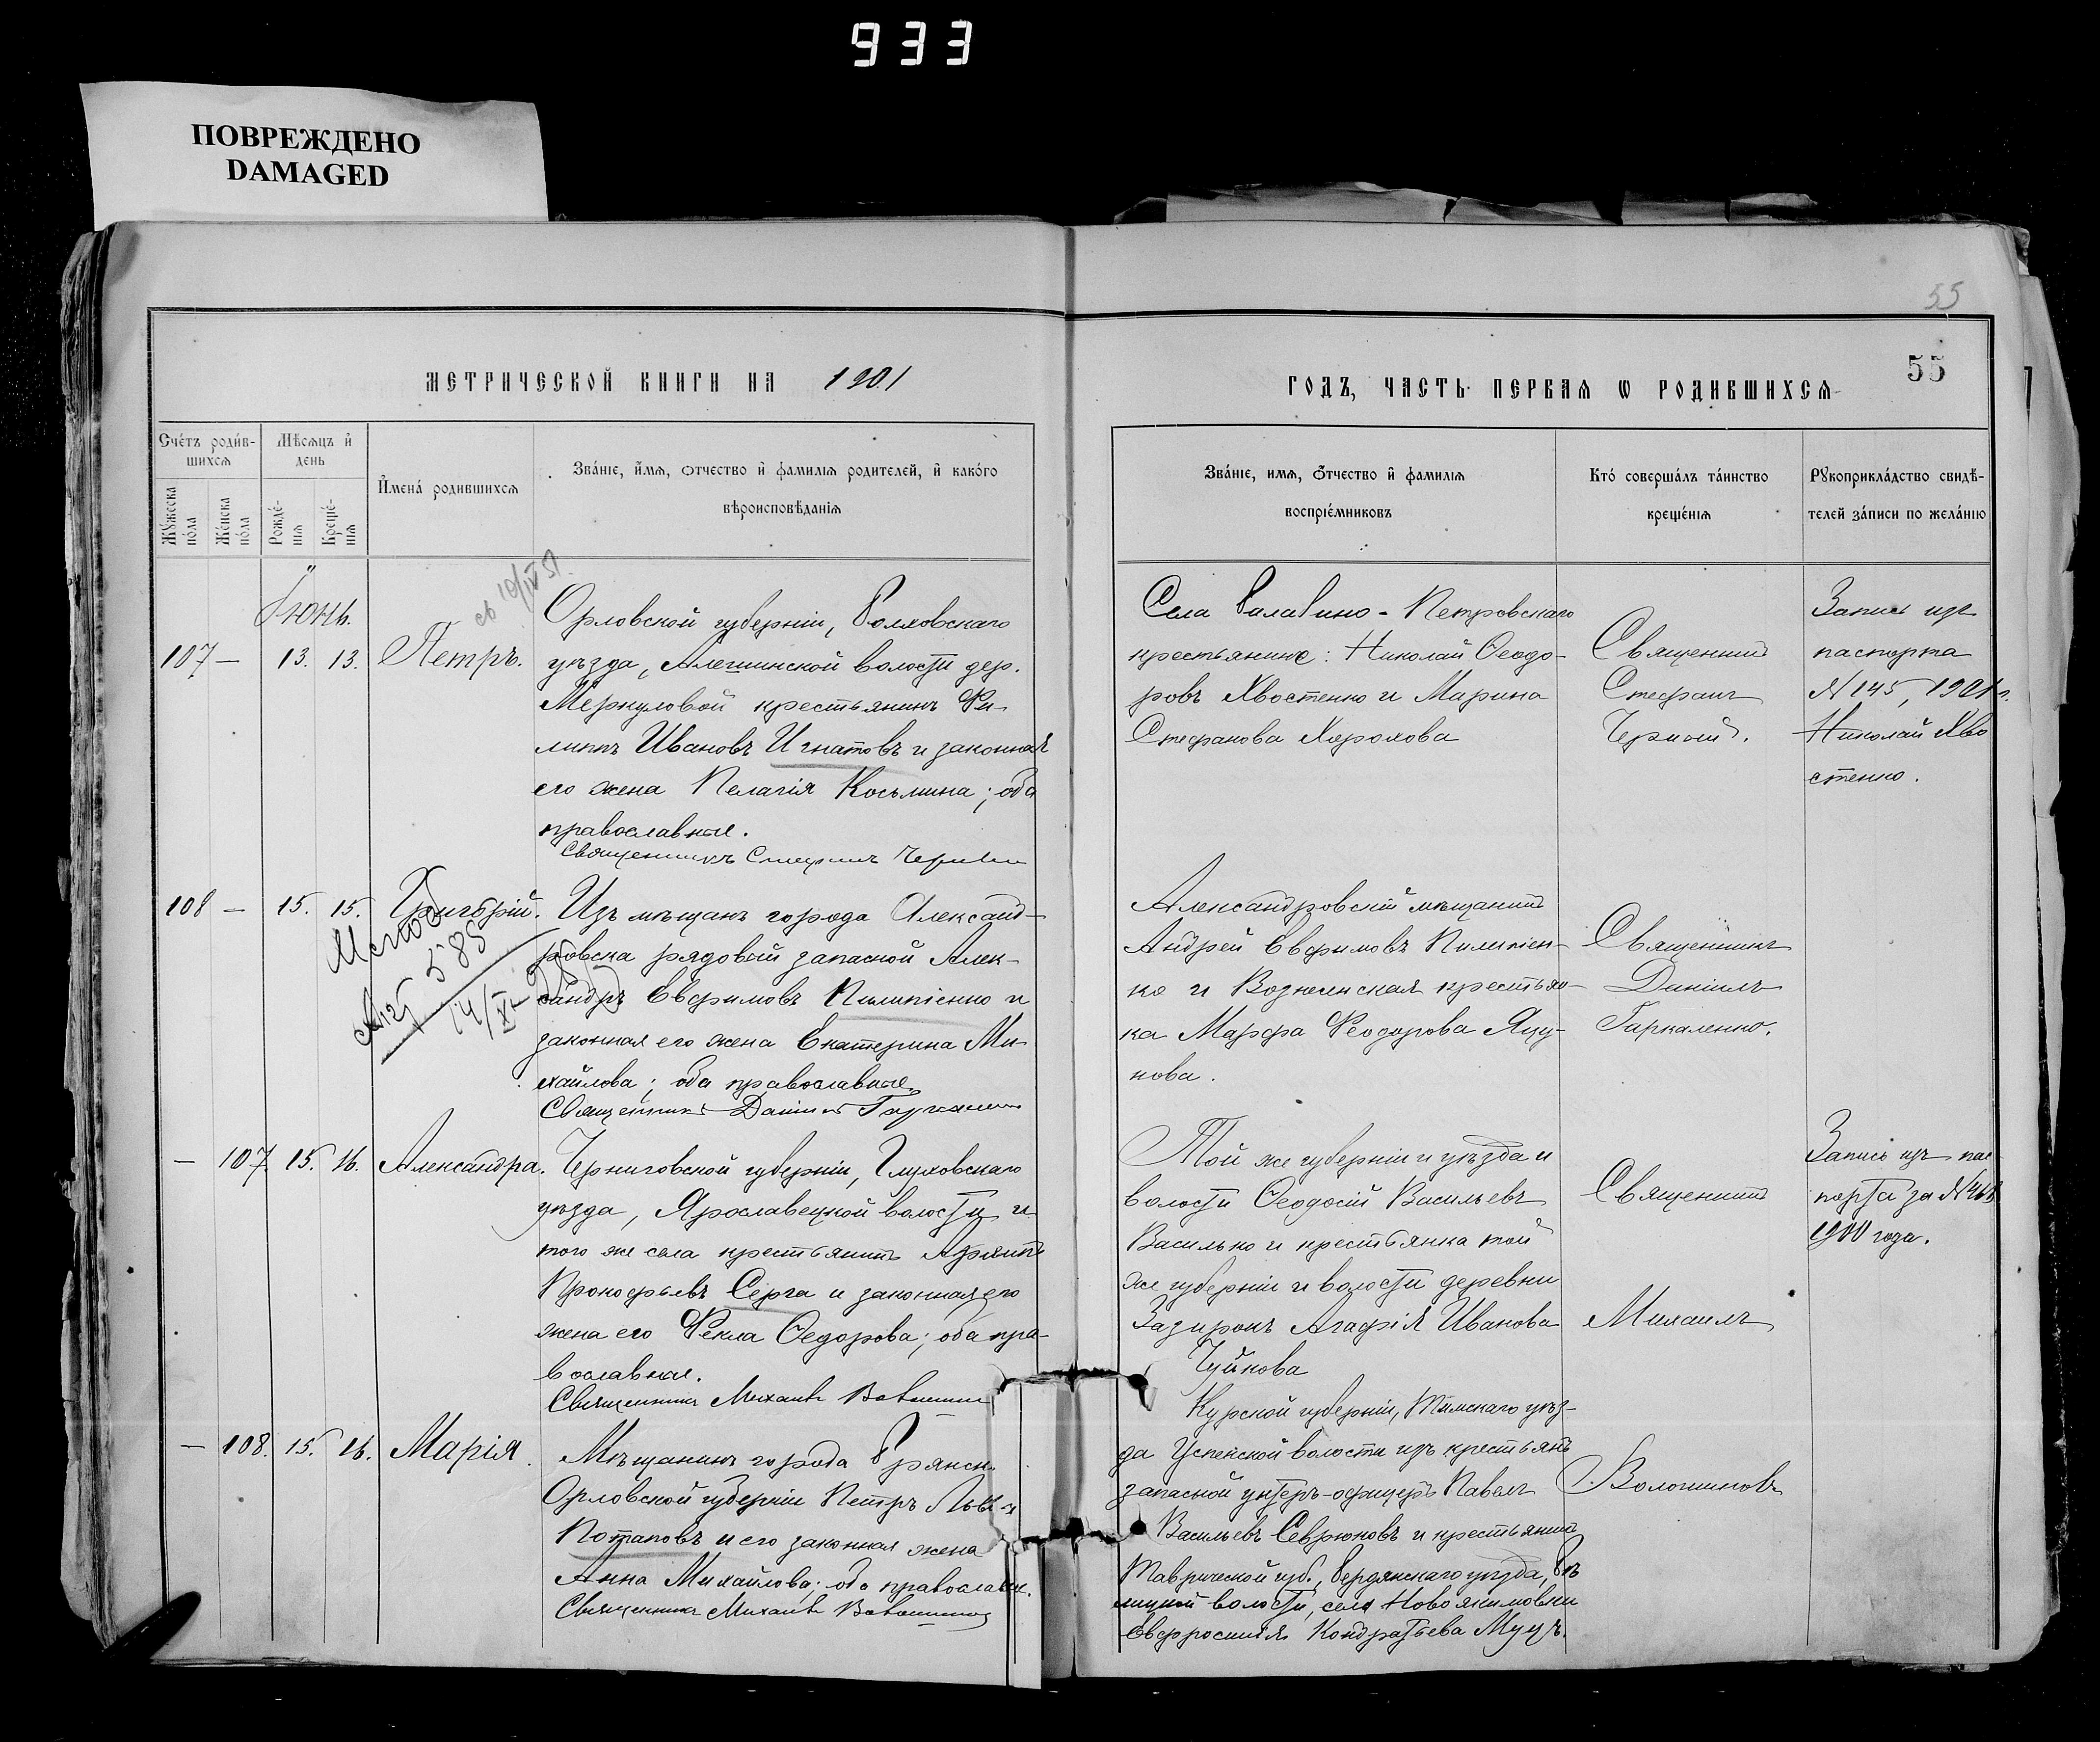 933
ПОВРЕЖДЕНО
DAMAGED
55
55
МЕТРИЧЕСКОЙ КНИГИ НА 1901
ГОДЪ, ЧАСТЬ ПЕРВАЯ Ѡ РОДИВШИХСЯ
Счетъ родив-
шихся
Мужеска
пола
Женска
пола
Мѣсяцъ и
день
Рожде-
нія
Креще-
нія
Имена родившихся
Званіе, имя, отчество и фамилія родителей, и какого
вѣроисповѣданія
Званіе, имя, отчество и фамилія
воспріемниковъ
Кто совершалъ таинство
крещенія
Рукоприкладство свидѣ-
телей записи по желанію
Іюнь.
107 — 13. 13. Петръ.
св 10/IV 51
Орловской губерніи, Болховскаго
уѣзда, Алешинской волости дер.
Меркуловой крестьянинъ Фи-
липпъ Ивановъ Игнатовъ и законная
его жена Пелагія Косьмина; оба
православные.
Священникъ Стефанъ Черный
Села Балабино-Петровскаго
крестьяне: Николай Ѳеодо-
ровъ Хвостенко и Марина
Стефанова Хорохова
Священникъ
Стефанъ
Черный.
Запись изъ
паспорта
№ 145, 1901 г.
Николай Хво
стенко.
108 — 15. 15. Григорій.
585
14/XI
Изъ мѣщанъ города Александ-
ровска рядовый запасной Алек-
сандръ Евфимовъ Пилипенко и
законная его жена Екатерина Ми-
хайлова; оба православные.
Священникъ Даніилъ Гаркаленко
Александровскій мѣщанинъ
Андрей Евфимовъ Пилипен-
ко и Вознесенская крестьян-
ка Марфа Феодорова Яцу-
нова.
Священникъ
Даніилъ
Гаркаленко.
— 107 15. 16. Александра.
Черниговской губерніи, Глуховскаго
уѣзда, Ярославецкой волости и
того же села крестьянинъ
Прокофьевъ Серга и законная его
жена его Фекла Ѳедорова; оба пра-
вославные.
Священникъ Михаилъ Волошиновъ
Той же губерніи и уѣзда и
волости Ѳеодосій Васильевъ
Василько и крестьянка той
же губерніи и волости деревни
Зазирокъ Агафія Иванова
Чуйкова
Священникъ
Михаилъ
Волошиновъ
Запись изъ пас-
порта за №
1900 года.
— 108. 15. 16. Марія.
Мѣщанинъ города Брянск.
Орловской губерніи Петръ
Потаповъ и его законная жена
Анна Михайлова; оба православные.
Священникъ Михаилъ Волошиновъ
Курской губерніи, Тимскаго уѣз-
да Успенской волости изъ крестьянъ
запасной унтеръ-офицеръ Павелъ
Васильевъ Севрюковъ и крестьянка
Таврической губ., Бердянскаго уѣзда,
волости, села Новоякимовки
Евфросинія Кондратьева Муцъ.